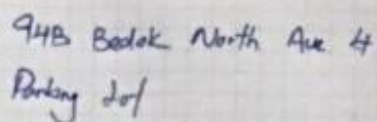 94B Bedok North Ave 4
Parking Lot